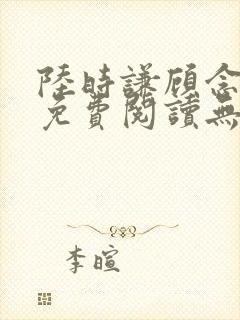 陸時謙顧念
免費閱讀無
李暄